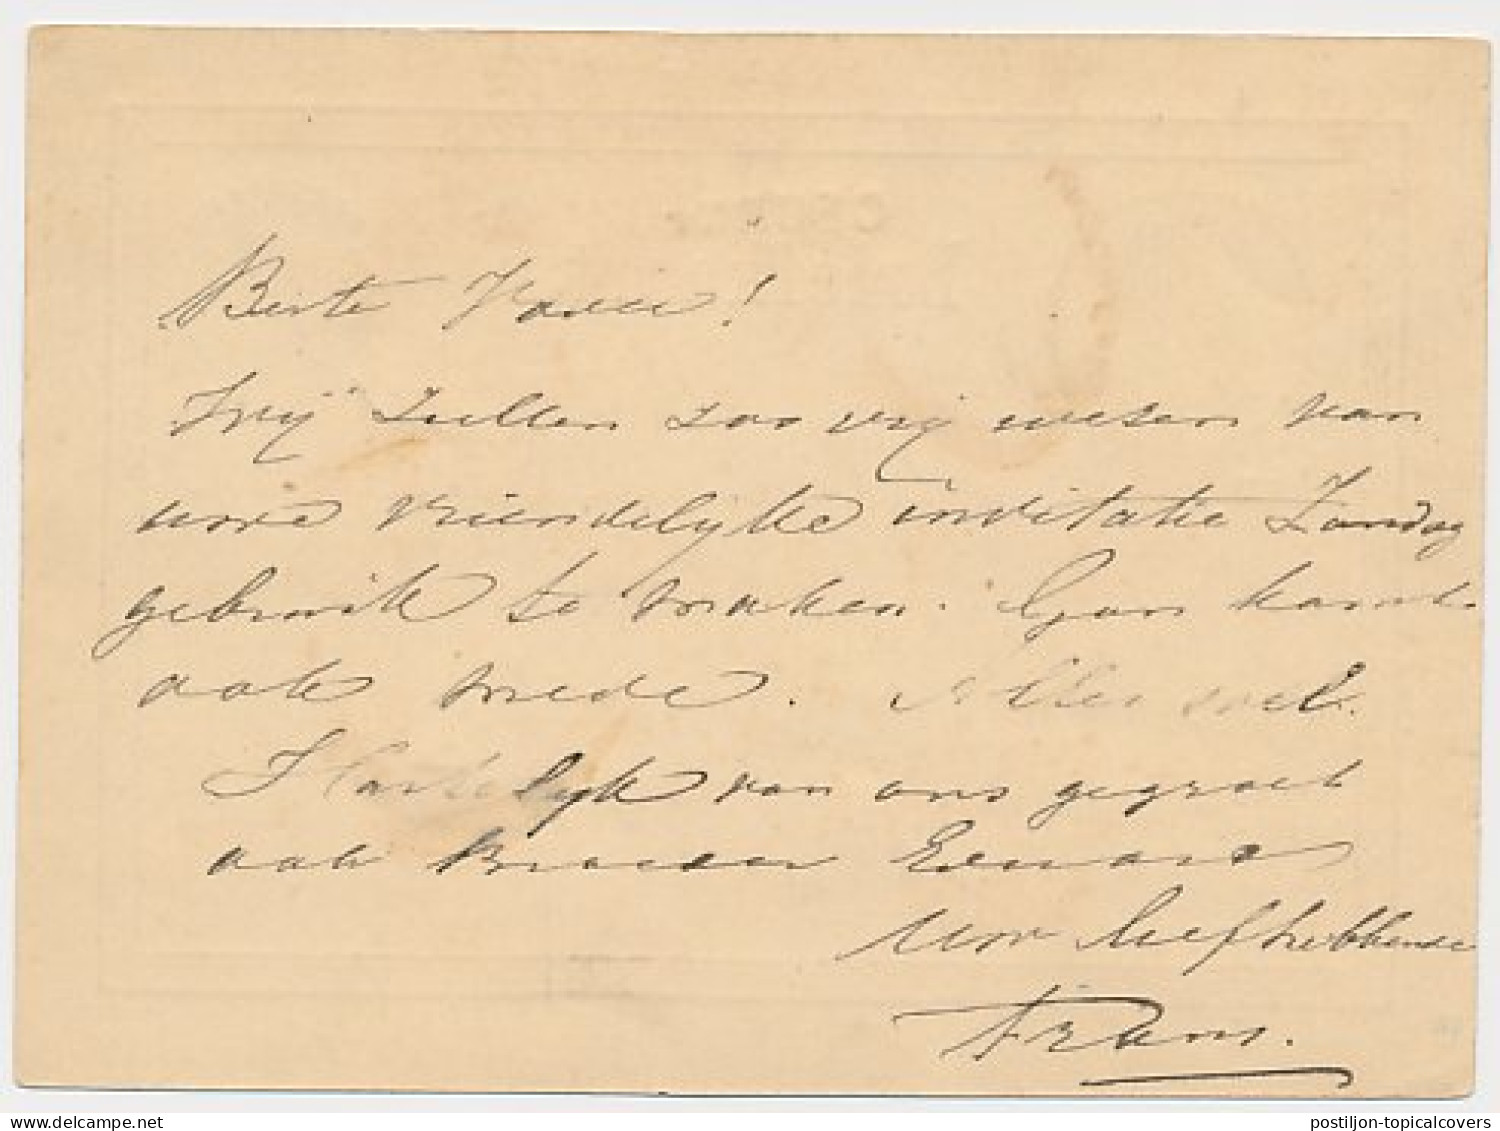 Beste
Wij zullen zoo vrij wezen van
uwe vriendelijke invitatie Zondag
gebruik te maken. Gon komt
ook mede. Alles wel.
Hartelijk van ons gegroet
ook Broeder Eduard
Uw liefhebbende
Frans.
postiljon-topicalcovers